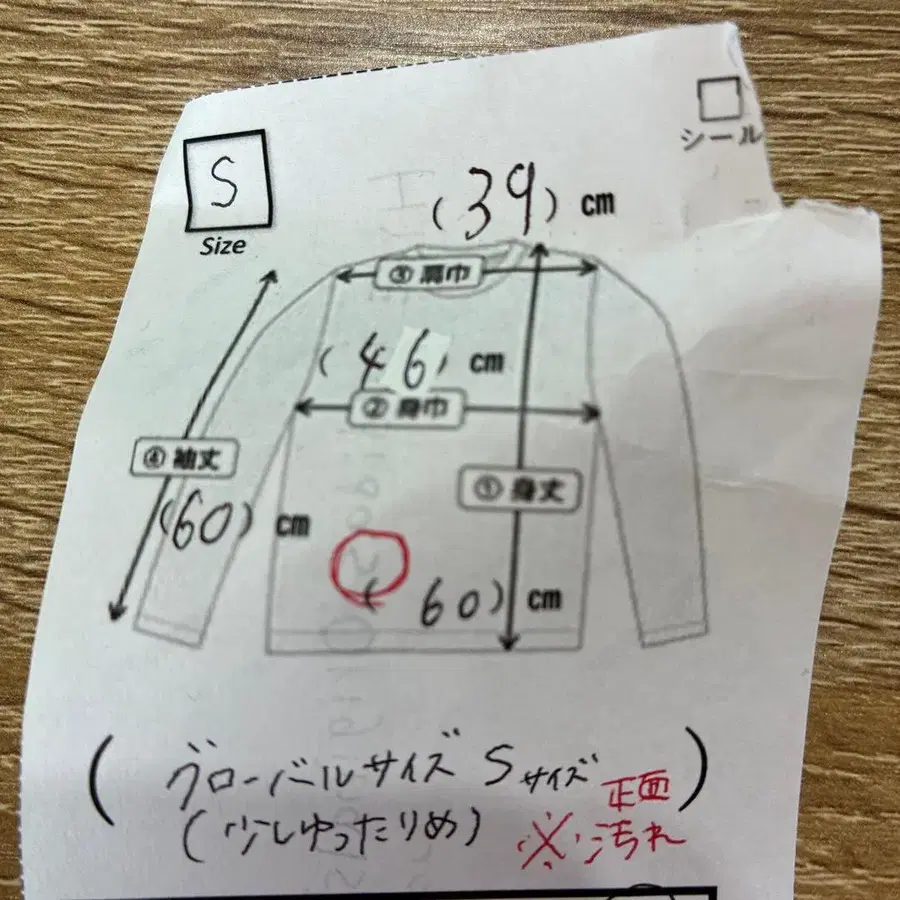 シール
S
Size
(39) cm
③ 肩巾
(46) cm
② 身巾
④ 袖丈
① 身丈
(60) cm
(60) cm
(グローバルサイズ Sサイズ)
(少しゆったりめ)
※正面汚れ